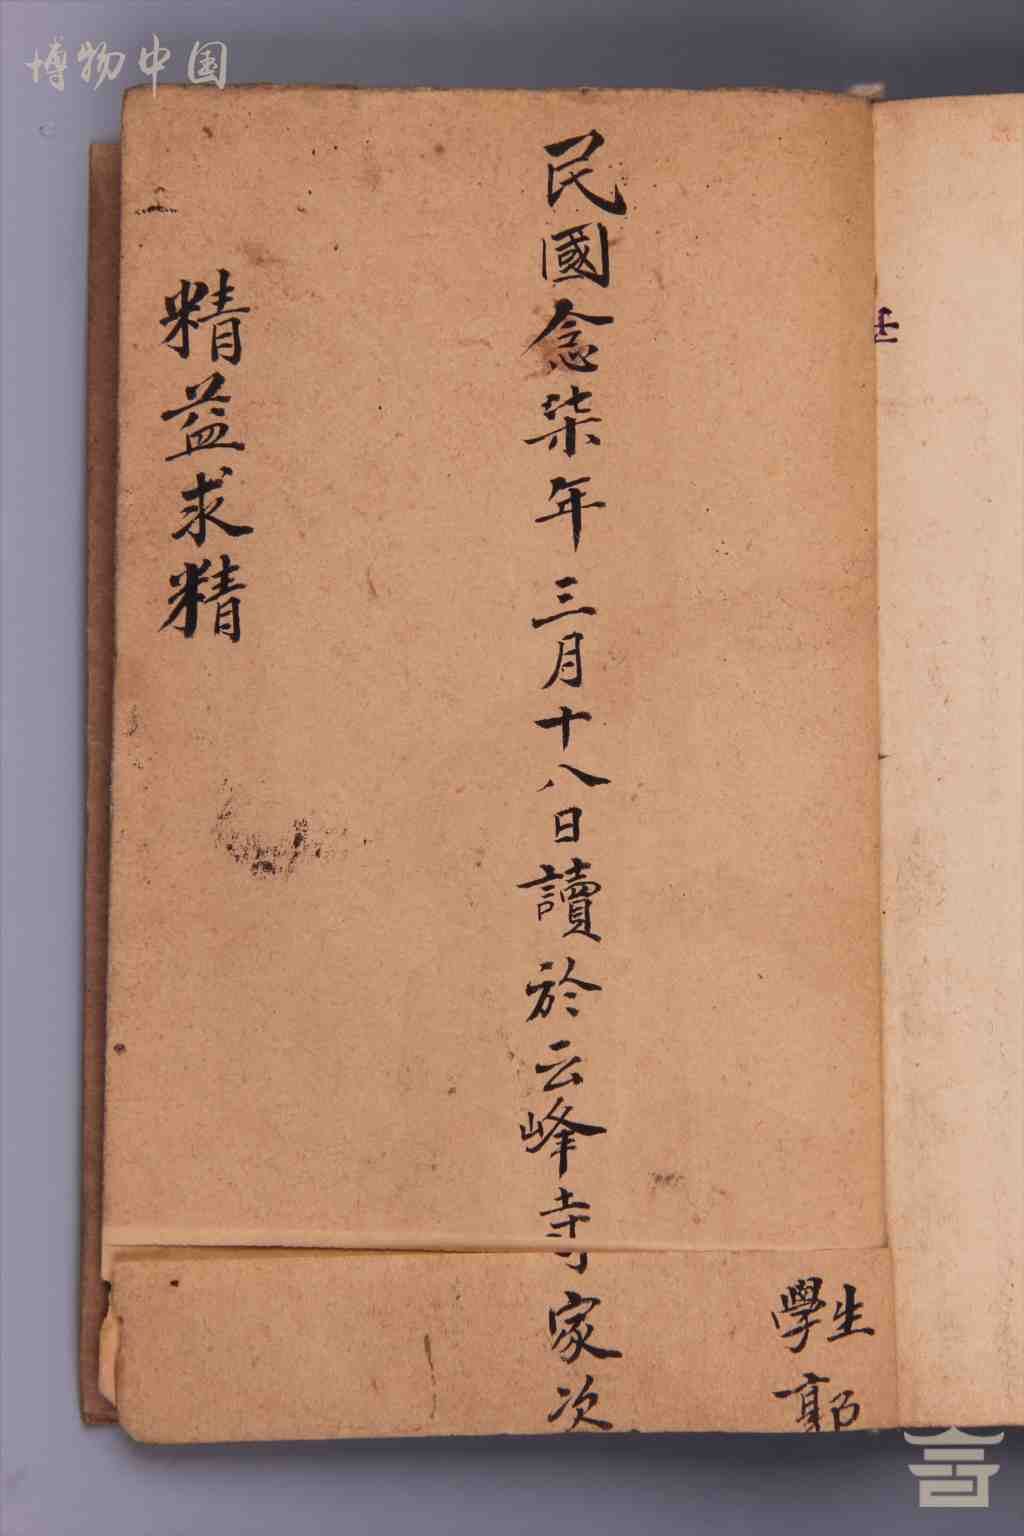 博物中国
學生
郭
民國念柒年三月十八日讀於云峰寺家次
精益求精